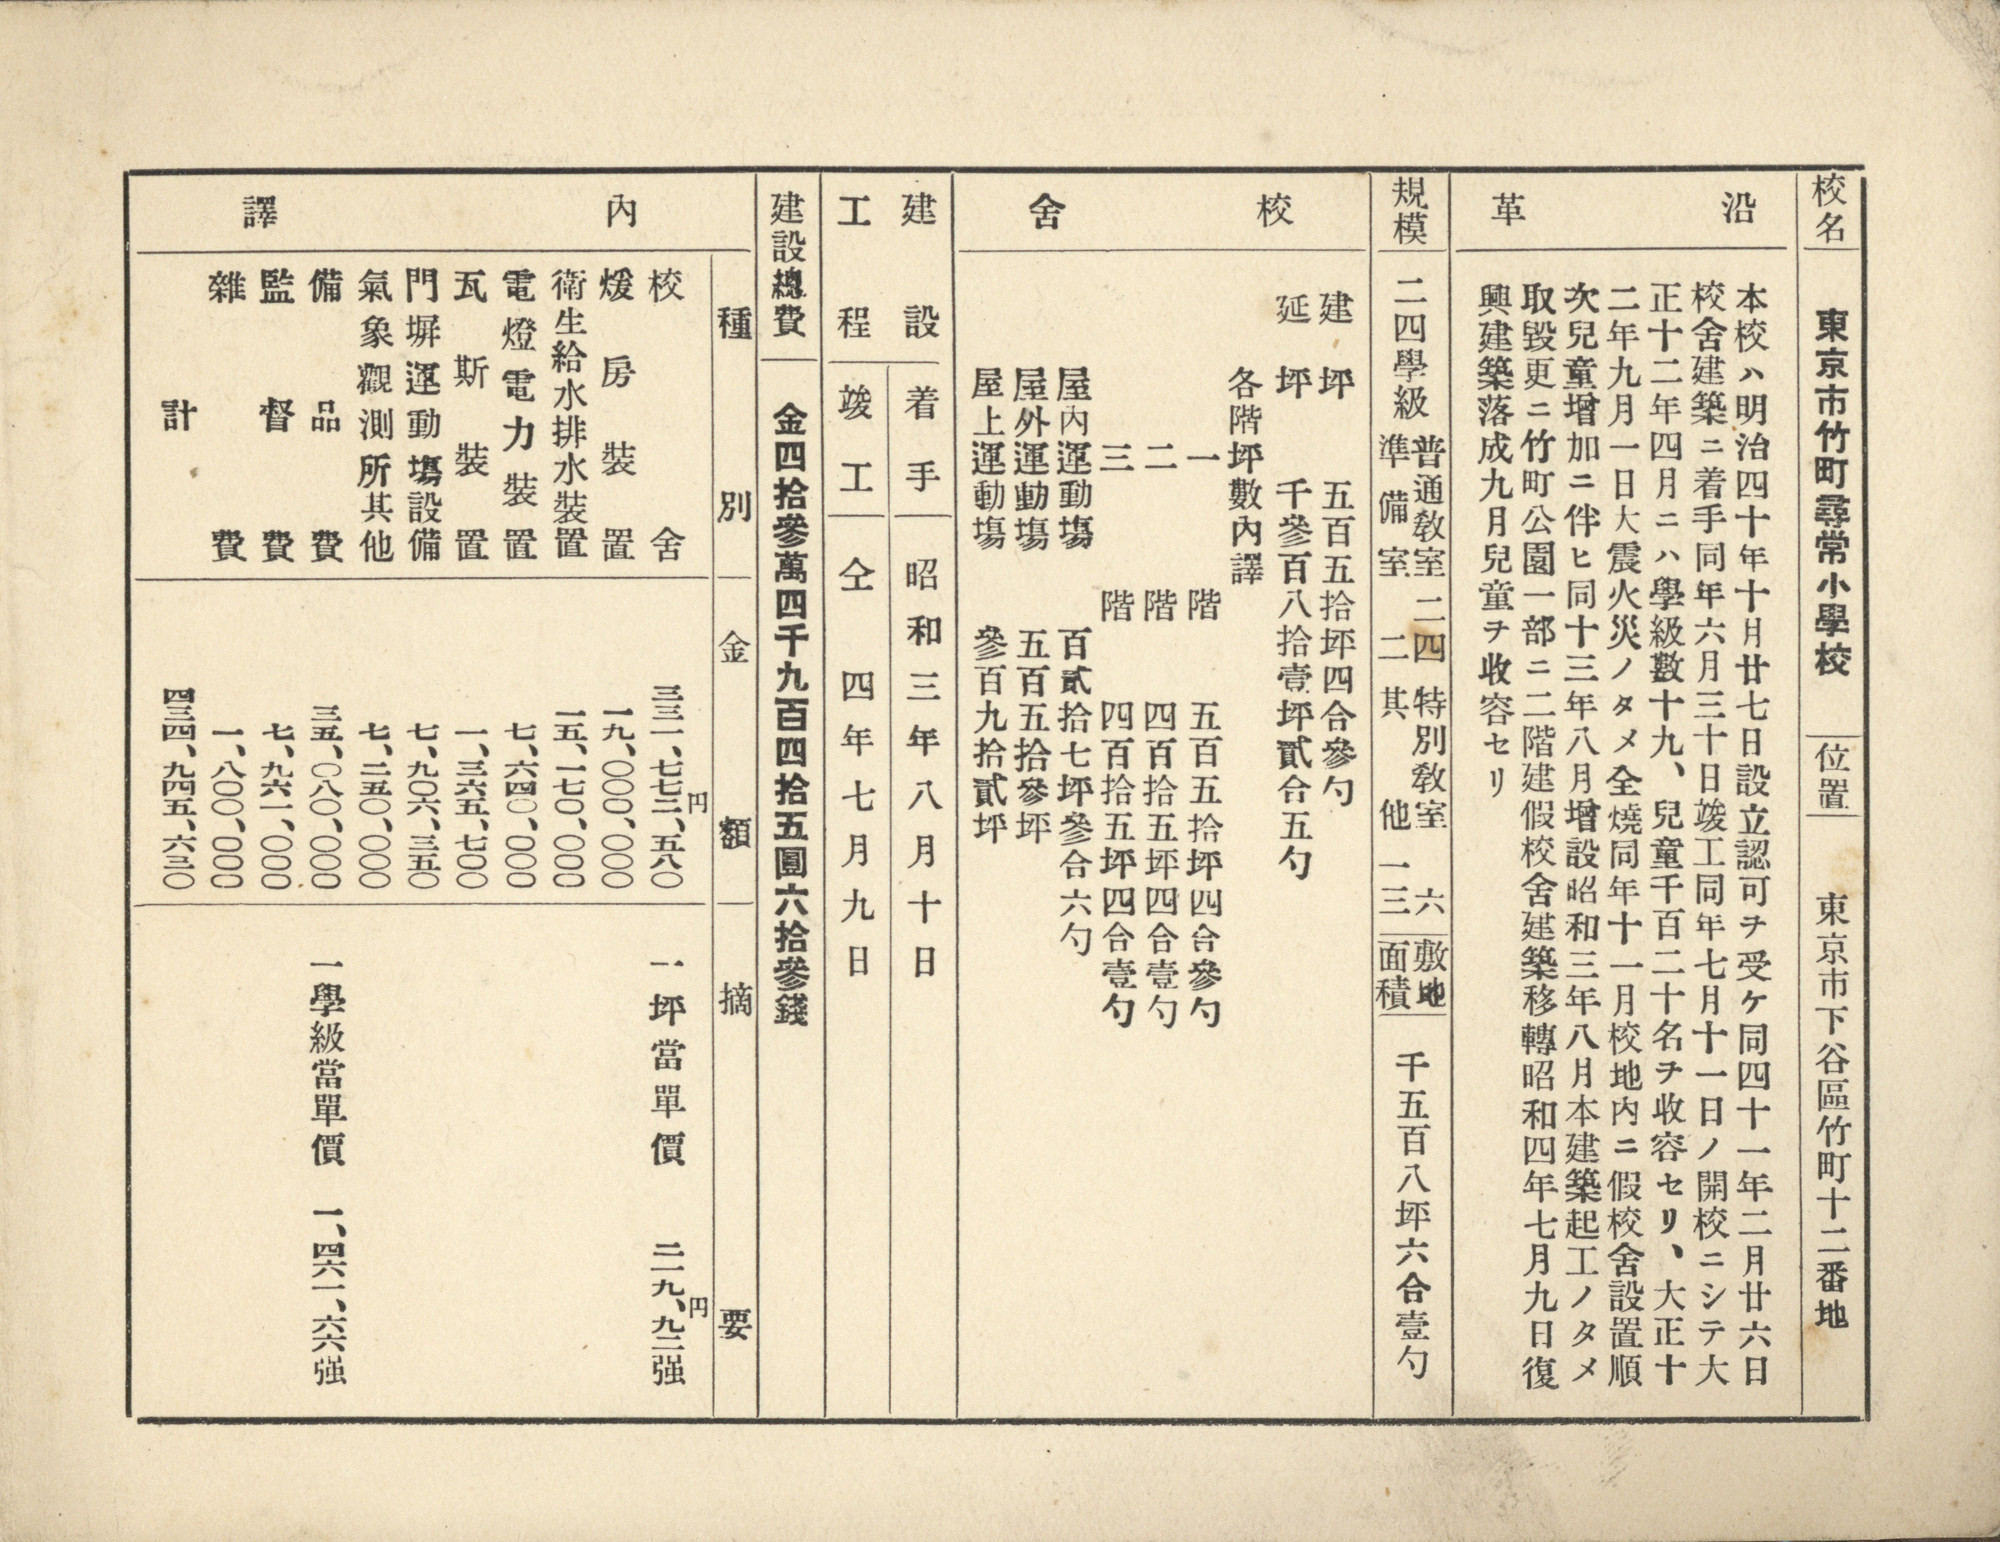 校名
東京市竹町尋常小學校
位置
東京市下谷區竹町十二番地
沿革
本校ハ明治四十年十月廿七日設立認可ヲ受ケ同四十一年二月廿六日
校舍建築ニ着手同年六月三十日竣工同年七月十一日ノ開校ニシテ大
正十二年四月ニハ學級數十九、兒童千百二十名ヲ收容セリ、大正十
二年九月一日大震火災ノタメ全燒同年十一月校地内ニ假校舍設置順
次兒童增加ニ伴ヒ同十三年八月增設昭和三年八月本建築起工ノタメ
取毀更ニ竹町公園一部ニ二階建假校舍建築移轉昭和四年七月九日復
興建築落成九月兒童ヲ收容セリ
規模
二四學級
普通敎室 二四 特別敎室 六
準備室 二 其他 一三
敷地
面積
千五百八坪六合壹勺
校舍
建坪 五百五拾坪四合參勺
延坪 千參百八拾壹坪貳合五勺
各階坪數內譯
一階 五百五拾坪四合參勺
二階 四百拾五坪四合壹勺
三階 四百拾五坪四合壹勺
屋內運動場 百貳拾七坪參合六勺
屋外運動場 五百五拾參坪
屋上運動場 參百九拾貳坪
建設
工程
着手 昭和三年八月十日
竣工 仝 四年七月九日
建設總費
金四拾參萬四千九百四拾五圓六拾參錢
內譯
種別 金額 摘要
校舍 三三一、七七二、五八〇円 一坪當單價 二一九、九二强円
煖房裝置 一九、〇〇〇、〇〇〇
衞生給水排水裝置 一五、一七〇、〇〇〇
電燈電力裝置 七、六四〇、〇〇〇
瓦斯裝置 一、三六五、七〇〇
門塀運動場設備 七、九〇六、三五〇
氣象觀測所其他 七、二五〇、〇〇〇
備品費 三五、〇八〇、〇〇〇 一學級當單價 一、四六一、六六强
監督費 七、九六一、〇〇〇
雜費 一、八〇〇、〇〇〇
計 四三四、九四五、六三〇